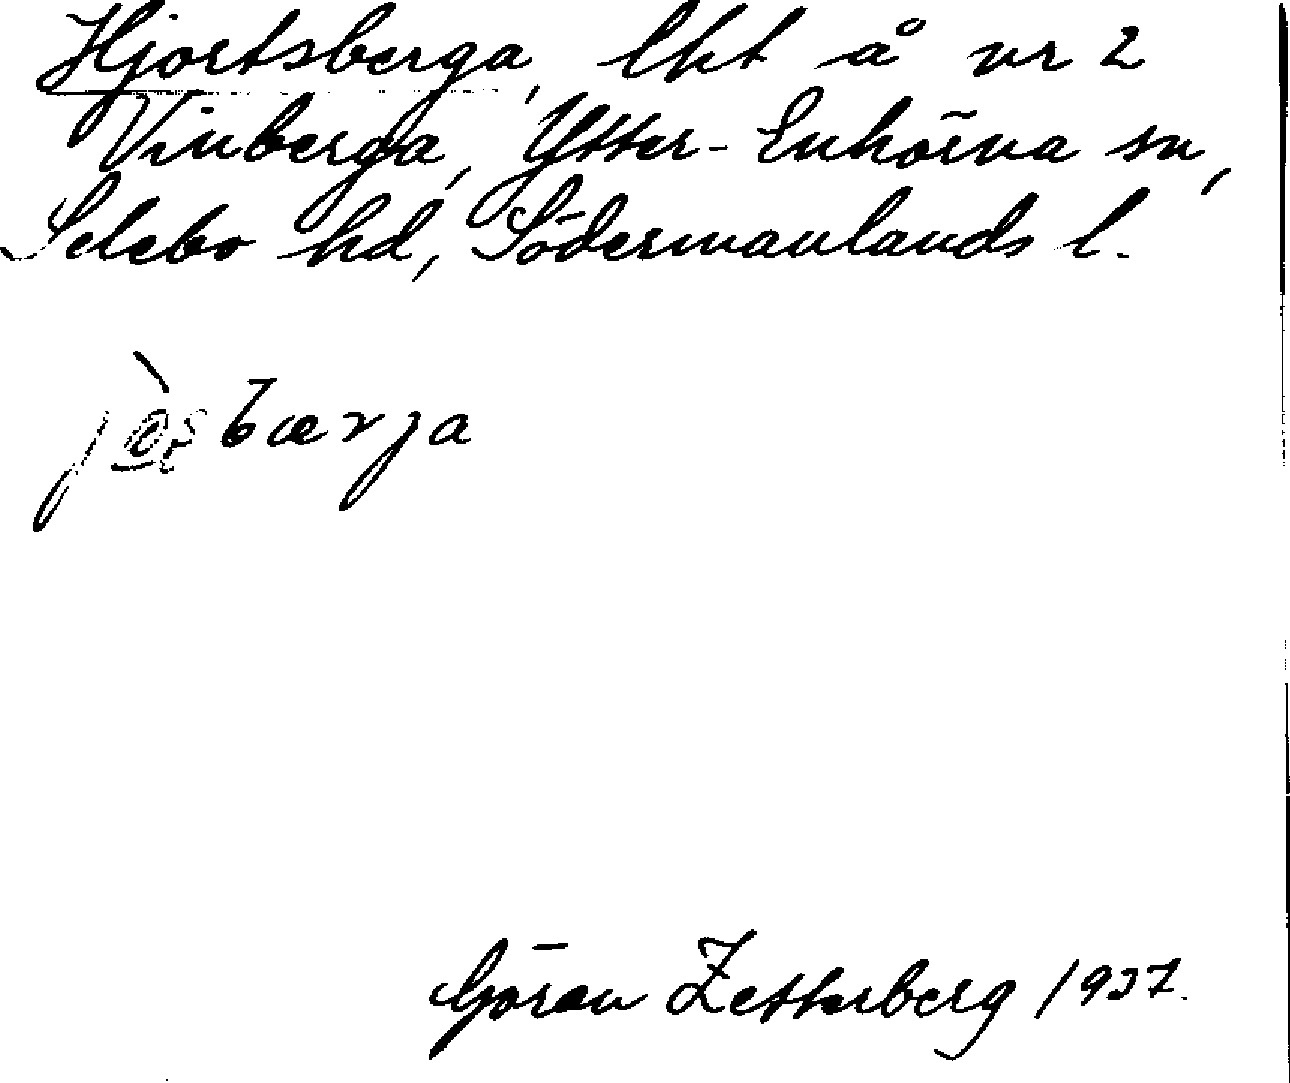 Hjortsberga, lht å nr 2
Vinberga, Ytter-Enhörna sn,
Selebo hd, Södermanlands l.
Göran Zetterberg 1937.